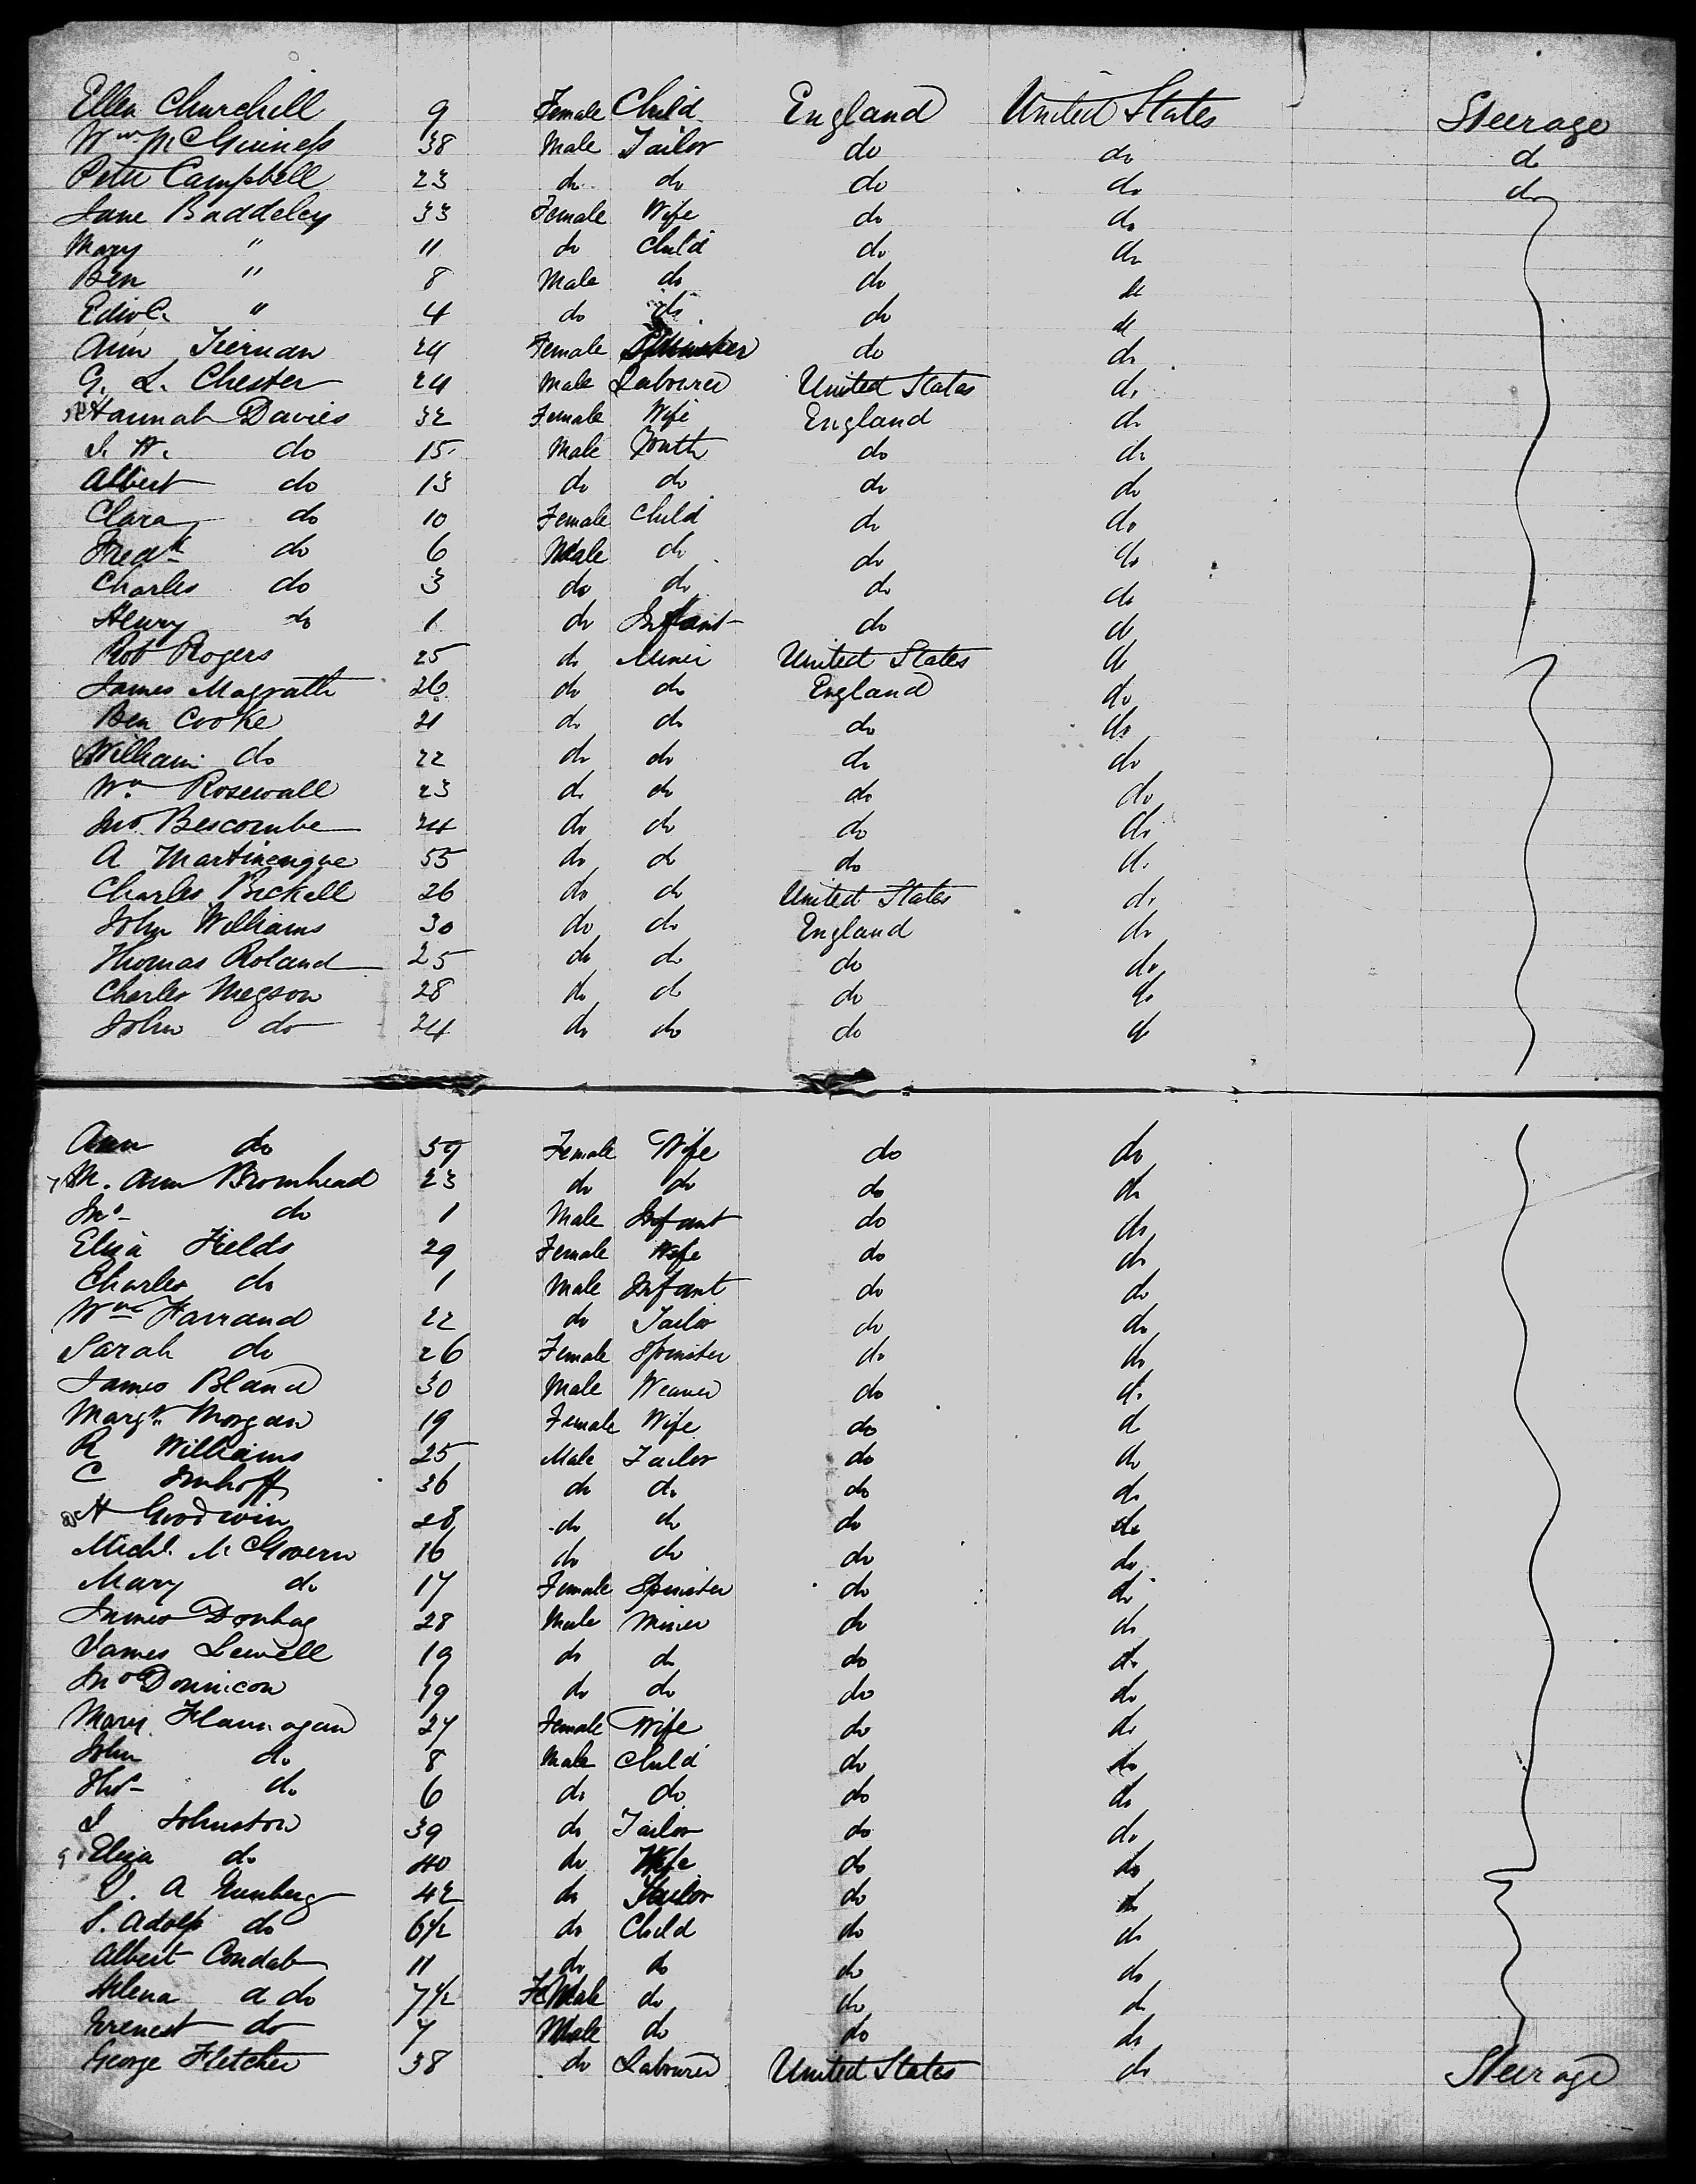 Ellen Churchill 9 Female Child England United States Steerage
Wm McGuiness 38 Male Tailor do do do
Peter Campbell 23 do do do do do
Jane Baddeley 33 Female Wife do do
Mary " 11 do Child do do
Ben " 8 Male do do do
Edwd. " 4 do do do do
Ann Tiernan 24 Female Spinster do do
G. L. Chester 24 Male Labourer United States do
Hannah Davies 32 Female Wife England do
J. W. do 15 Male Youth do do
Albert do 13 do do do do
Clara do 10 Female Child do do
Fredk do 6 Male do do do
Charles do 3 do do do do
Henry do 1 do Infant do do
Rob Rogers 25 do Miner United States do
James Magrath 26 do do England do
Ben Cooke 21 do do do do
William do 22 do do do do
Wm Rosewall 23 do do do do
Jno. Bescombe 24 do do do do
A Martinengue 55 do do do do
Charles Bickell 26 do do United States do
John Williams 30 do do England do
Thomas Roland 25 do do do do
Charles Megson 28 do do do do
John do 24 do do do do
Ann do 59 Female Wife do do
M. Ann Bromhead 23 do do do do
Jno do 1 Male Infant do do
Eliza Fields 29 Female Wife do do
Charles do 1 Male Infant do do
Wm Farrand 22 do Tailor do do
Sarah do 26 Female Spinster do do
James Bland 30 Male Weaver do do
Margt. Morgan 19 Female Wife do do
R Williams 25 Male Tailor do do
C Imhoff 36 do do do do
H Goodwin 28 do do do do
Michl. McGovern 16 do do do do
Mary do 17 Female Spinster do do
James Donhag 28 Male Miner do do
James Lewell 19 do do do do
Jno Donnicon 19 do do do do
Mary Flannagan 27 Female Wife do do
John do 8 Male Child do do
Thos do 6 do do do do
J Johnston 39 do Tailor do do
Eliza do 40 do Wife do do
V. A 42 do Tailor do do
S. Adolf do 6½ do Child do do
Albert Condab 11 do do do do
Helena a do 7½ FeMale do do do
Erenest do 7 Male do do do
George Fletcher 38 do Labourer United States do Steerage